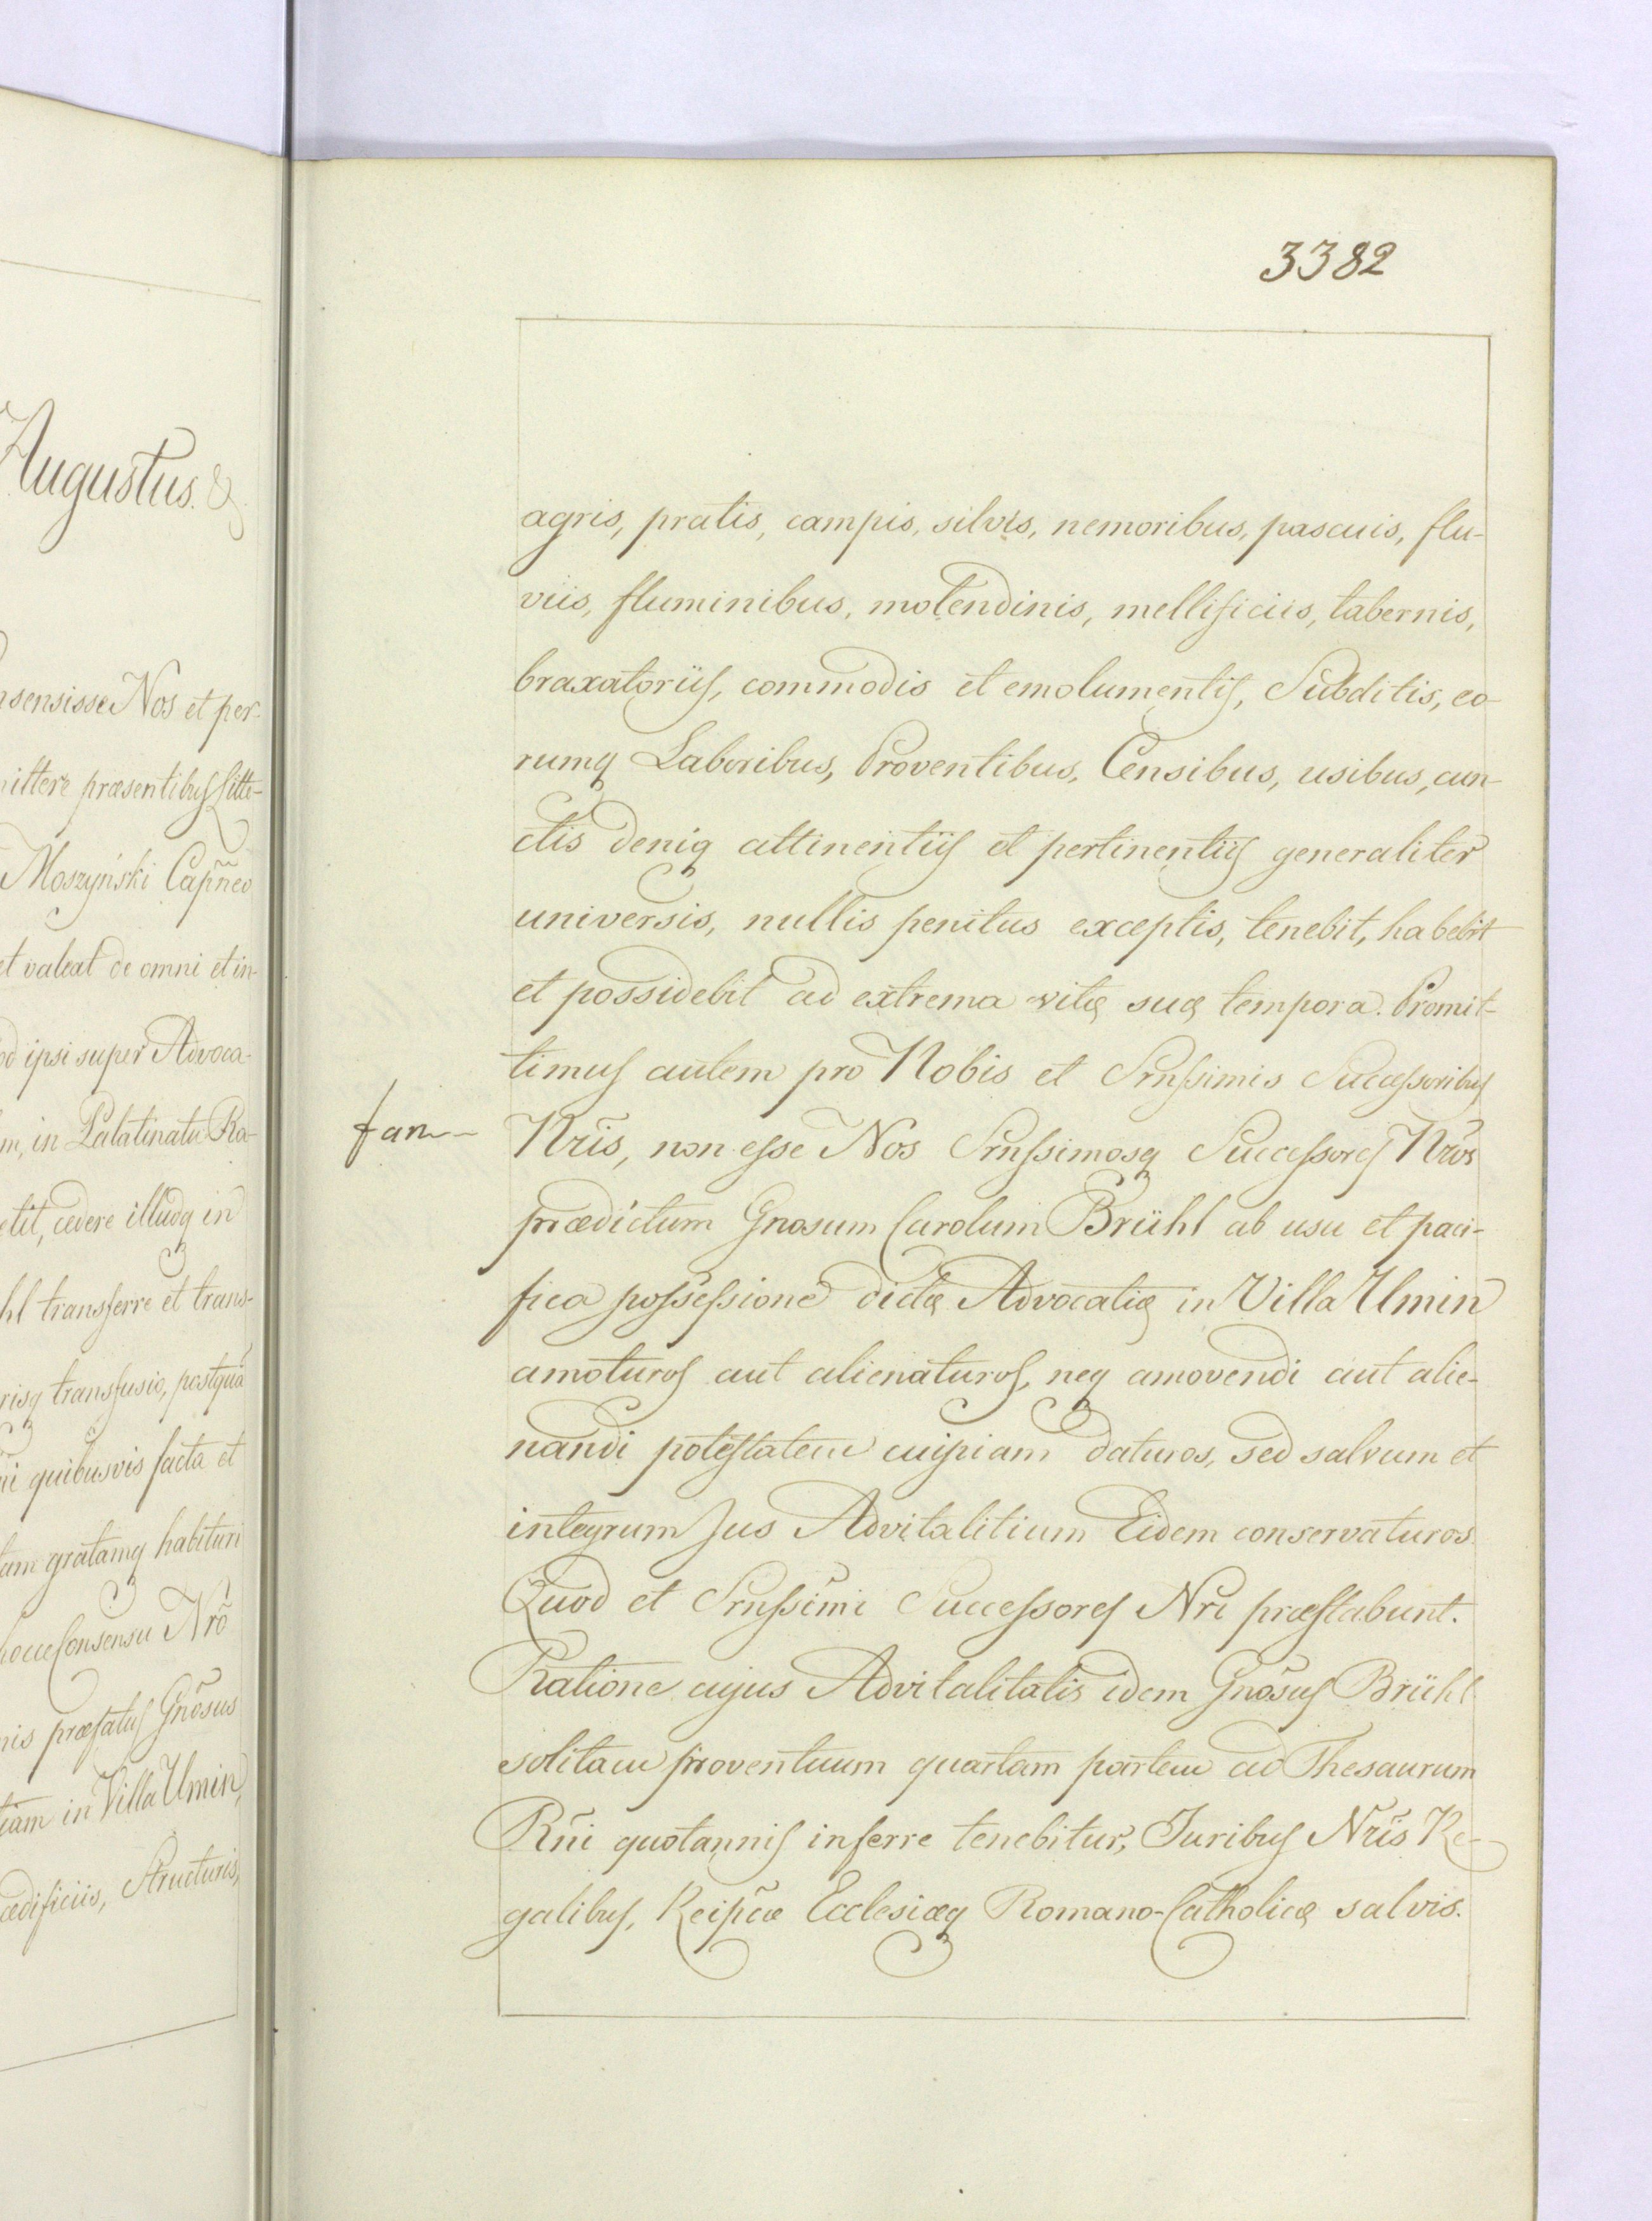 3382
Augustus. &
nsensisse Nos et per-
mittere præsentibus Litte-
Moszyński Capñeo
et valeat de omni et in-
od ipsi super Advoca-
m, in Palatinatu Ra-
etit, cedere illudq in
hl transferre et trans-
risq transfusio, postquã
ni quibusvis facta et
tam gratamq habituri
Consensu Nrõ
nis præfatus Gnõsus
tiam in Villa Umin,
ædificiis, Structuris,
agris, pratis, campis, silvis, nemoribus, pascuis, flu-
viis, fluminibus, molendinis, mellificiis, tabernis,
braxatoriis, commodis et emolumentis, Subditis, eo-
rumq Laboribus, Proventibus, Censibus, usibus, cun-
ctis deniq attinentiis et pertinentiis generaliter
universis, nullis penitus exceptis, tenebit, habebit
et possidebit ad extrema vitæ suæ tempora. Promit-
timus autem pro Nobis et Srnssimis Successoribus
fam-
Nrĩs, non esse Nos Srnssimosq Successores Nrõs
prædictum Gnosum Carolum Brühl ab usu et paci-
fica possessione dictæ Advocatiæ in Villa Umin
amoturos aut alienaturos, neq amovendi aut alie-
nandi potestatem cuipiam daturos, sed salvum et
integrum Jus Advitalitium Eidem conservaturos.
Quod et Srnssimi Successores Nrĩ præstabunt.
Ratione cujus Advitalitatis idem Gnõsus Brühl
solitam proventuum quartam partem ad Thesaurum
Rñi quotannis inferre tenebitur, Juribus Nrĩs Re-
galibus, Reipcæ Ecclesiæq Romano-Catholicæ salvis.